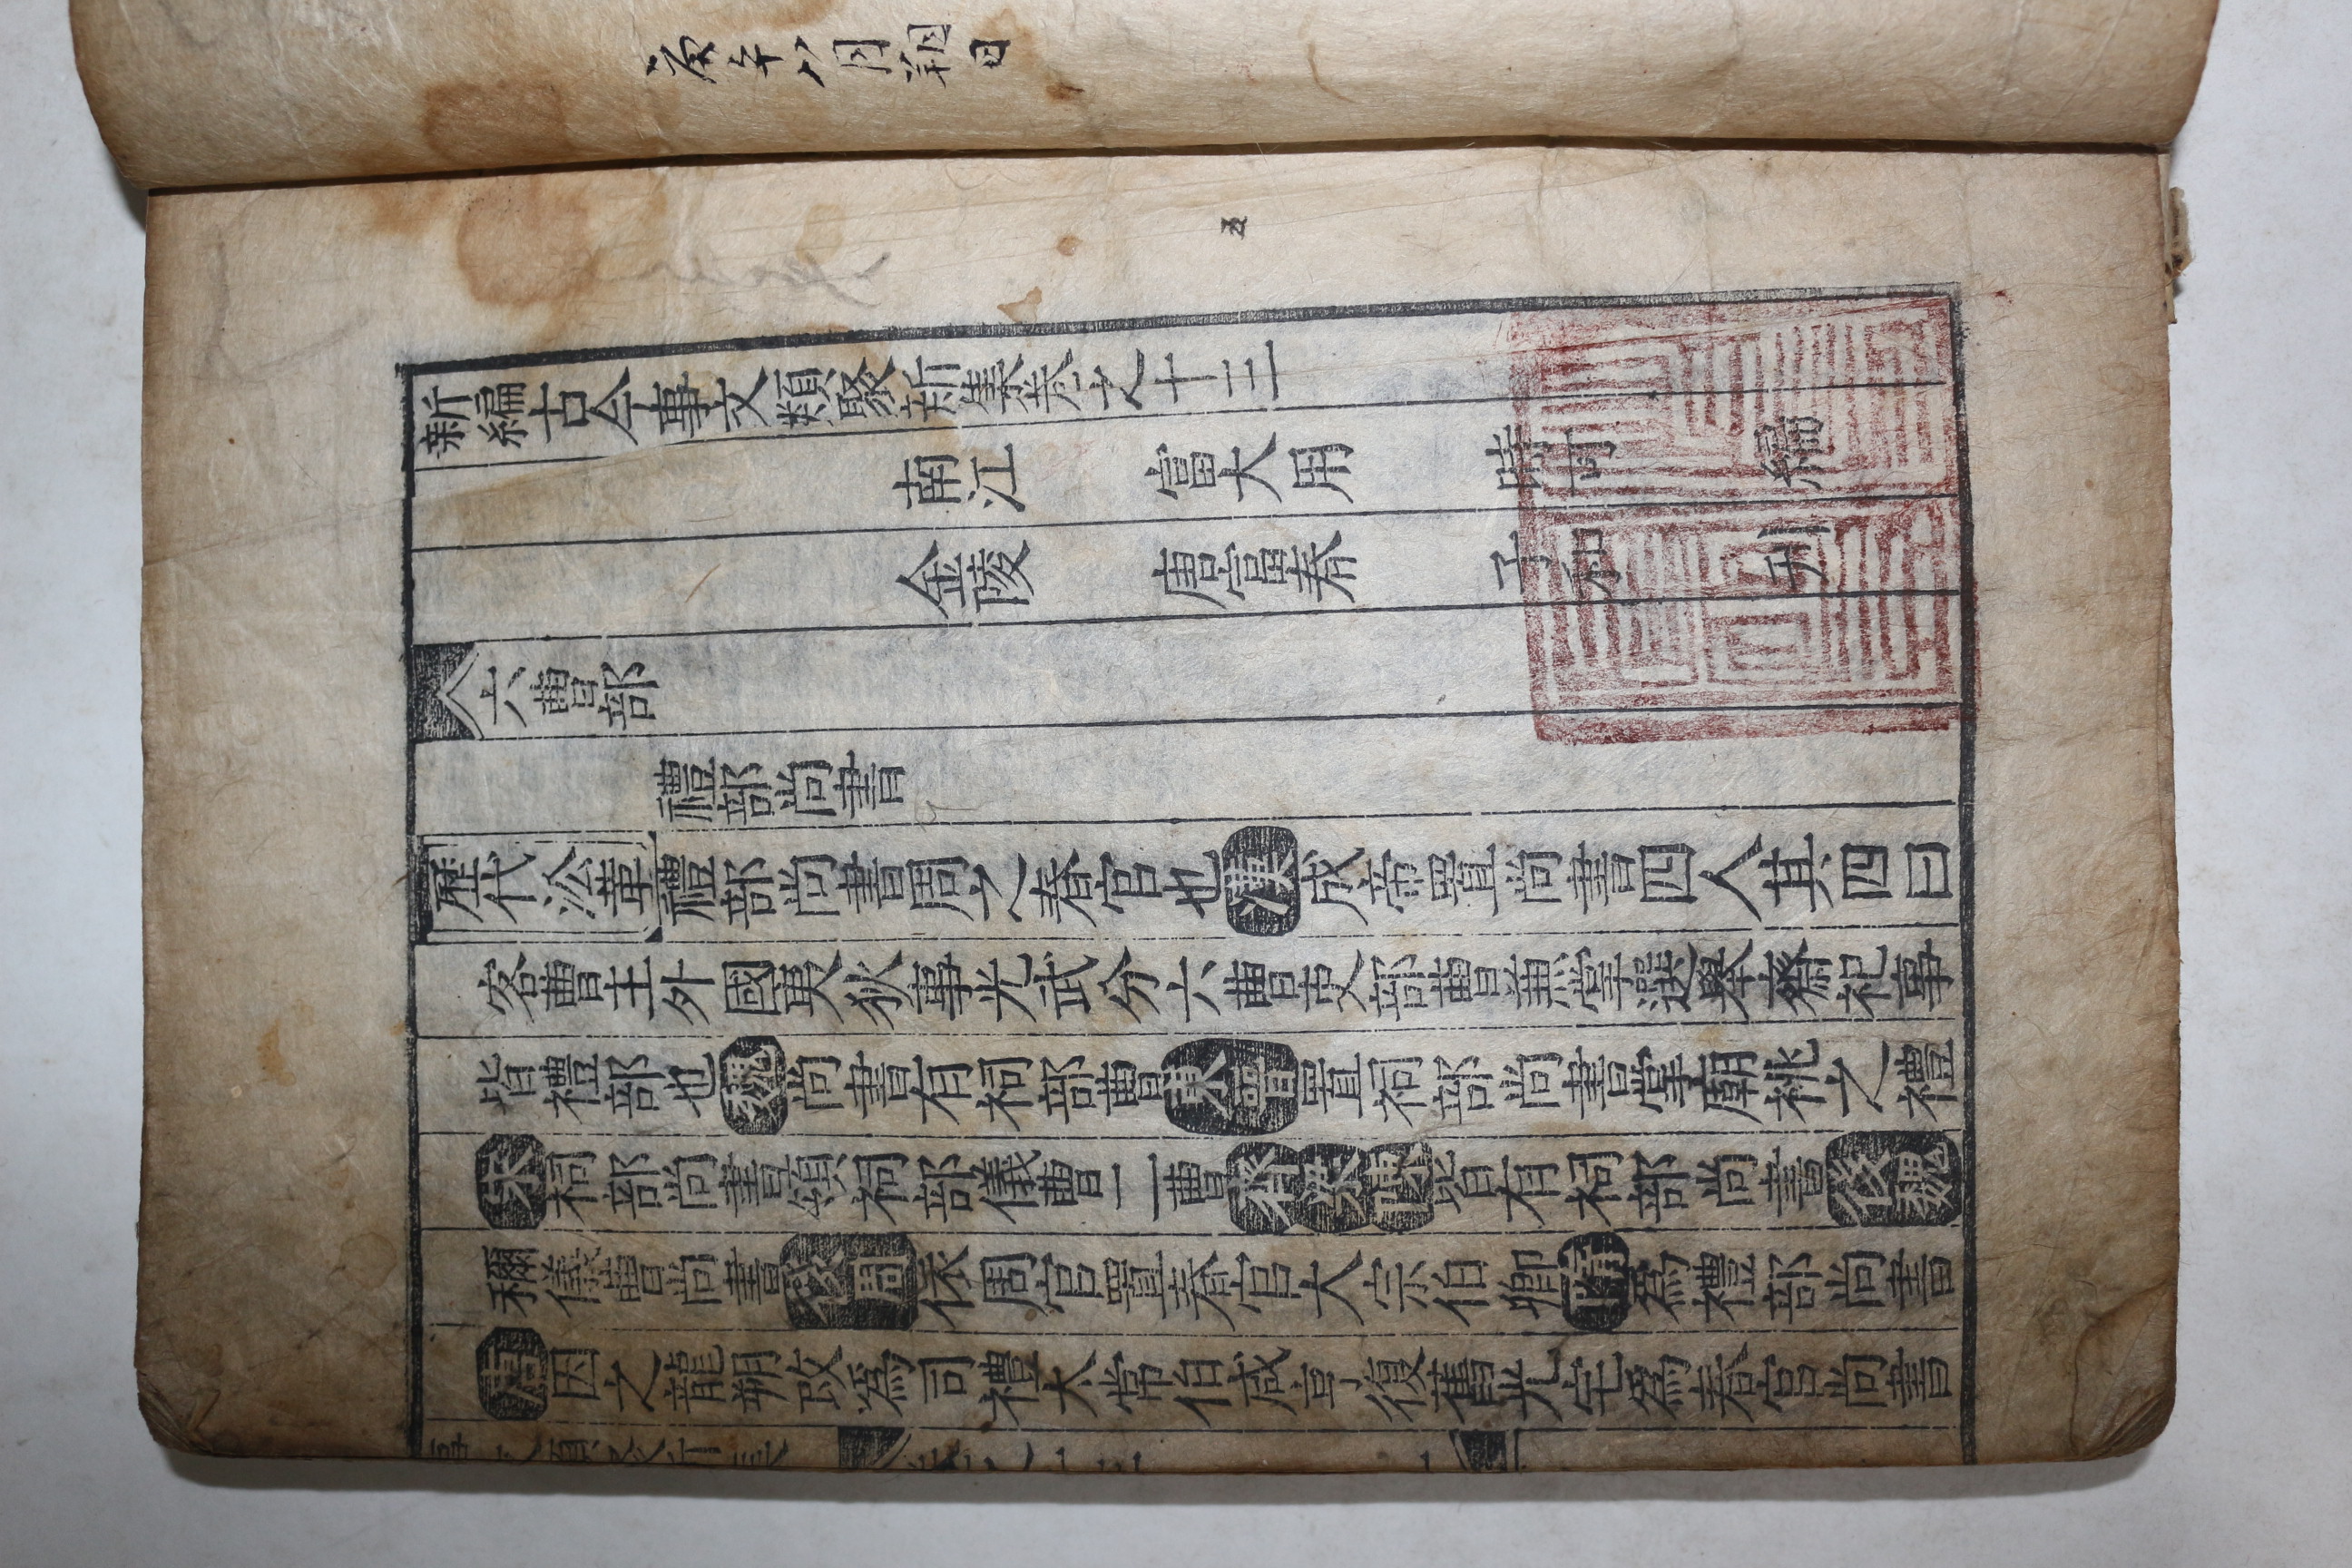 年八月朔日
新編古今事文類聚新集卷之十三
南江 富大用 時可 編
金陵 唐富春 子和 刊
六曹部
禮部尚書
歷代沿革禮部尚書周之春官也漢成帝置尚書四人其四曰
客曹主外國夷狄事光武分六曹吏部曹兼掌選舉齋祀事
皆禮部也魏尚書有祠部曹東晉置祠部尚書掌廟祧之禮
宋祠部尚書領祠部儀曹二曹齊梁陳皆有祠部尚書後魏
稱儀曹尚書後周依周官置春官大宗伯卿隋爲禮部尚書
唐因之龍朔改爲司禮太常伯咸亨復舊光宅爲春官尚書